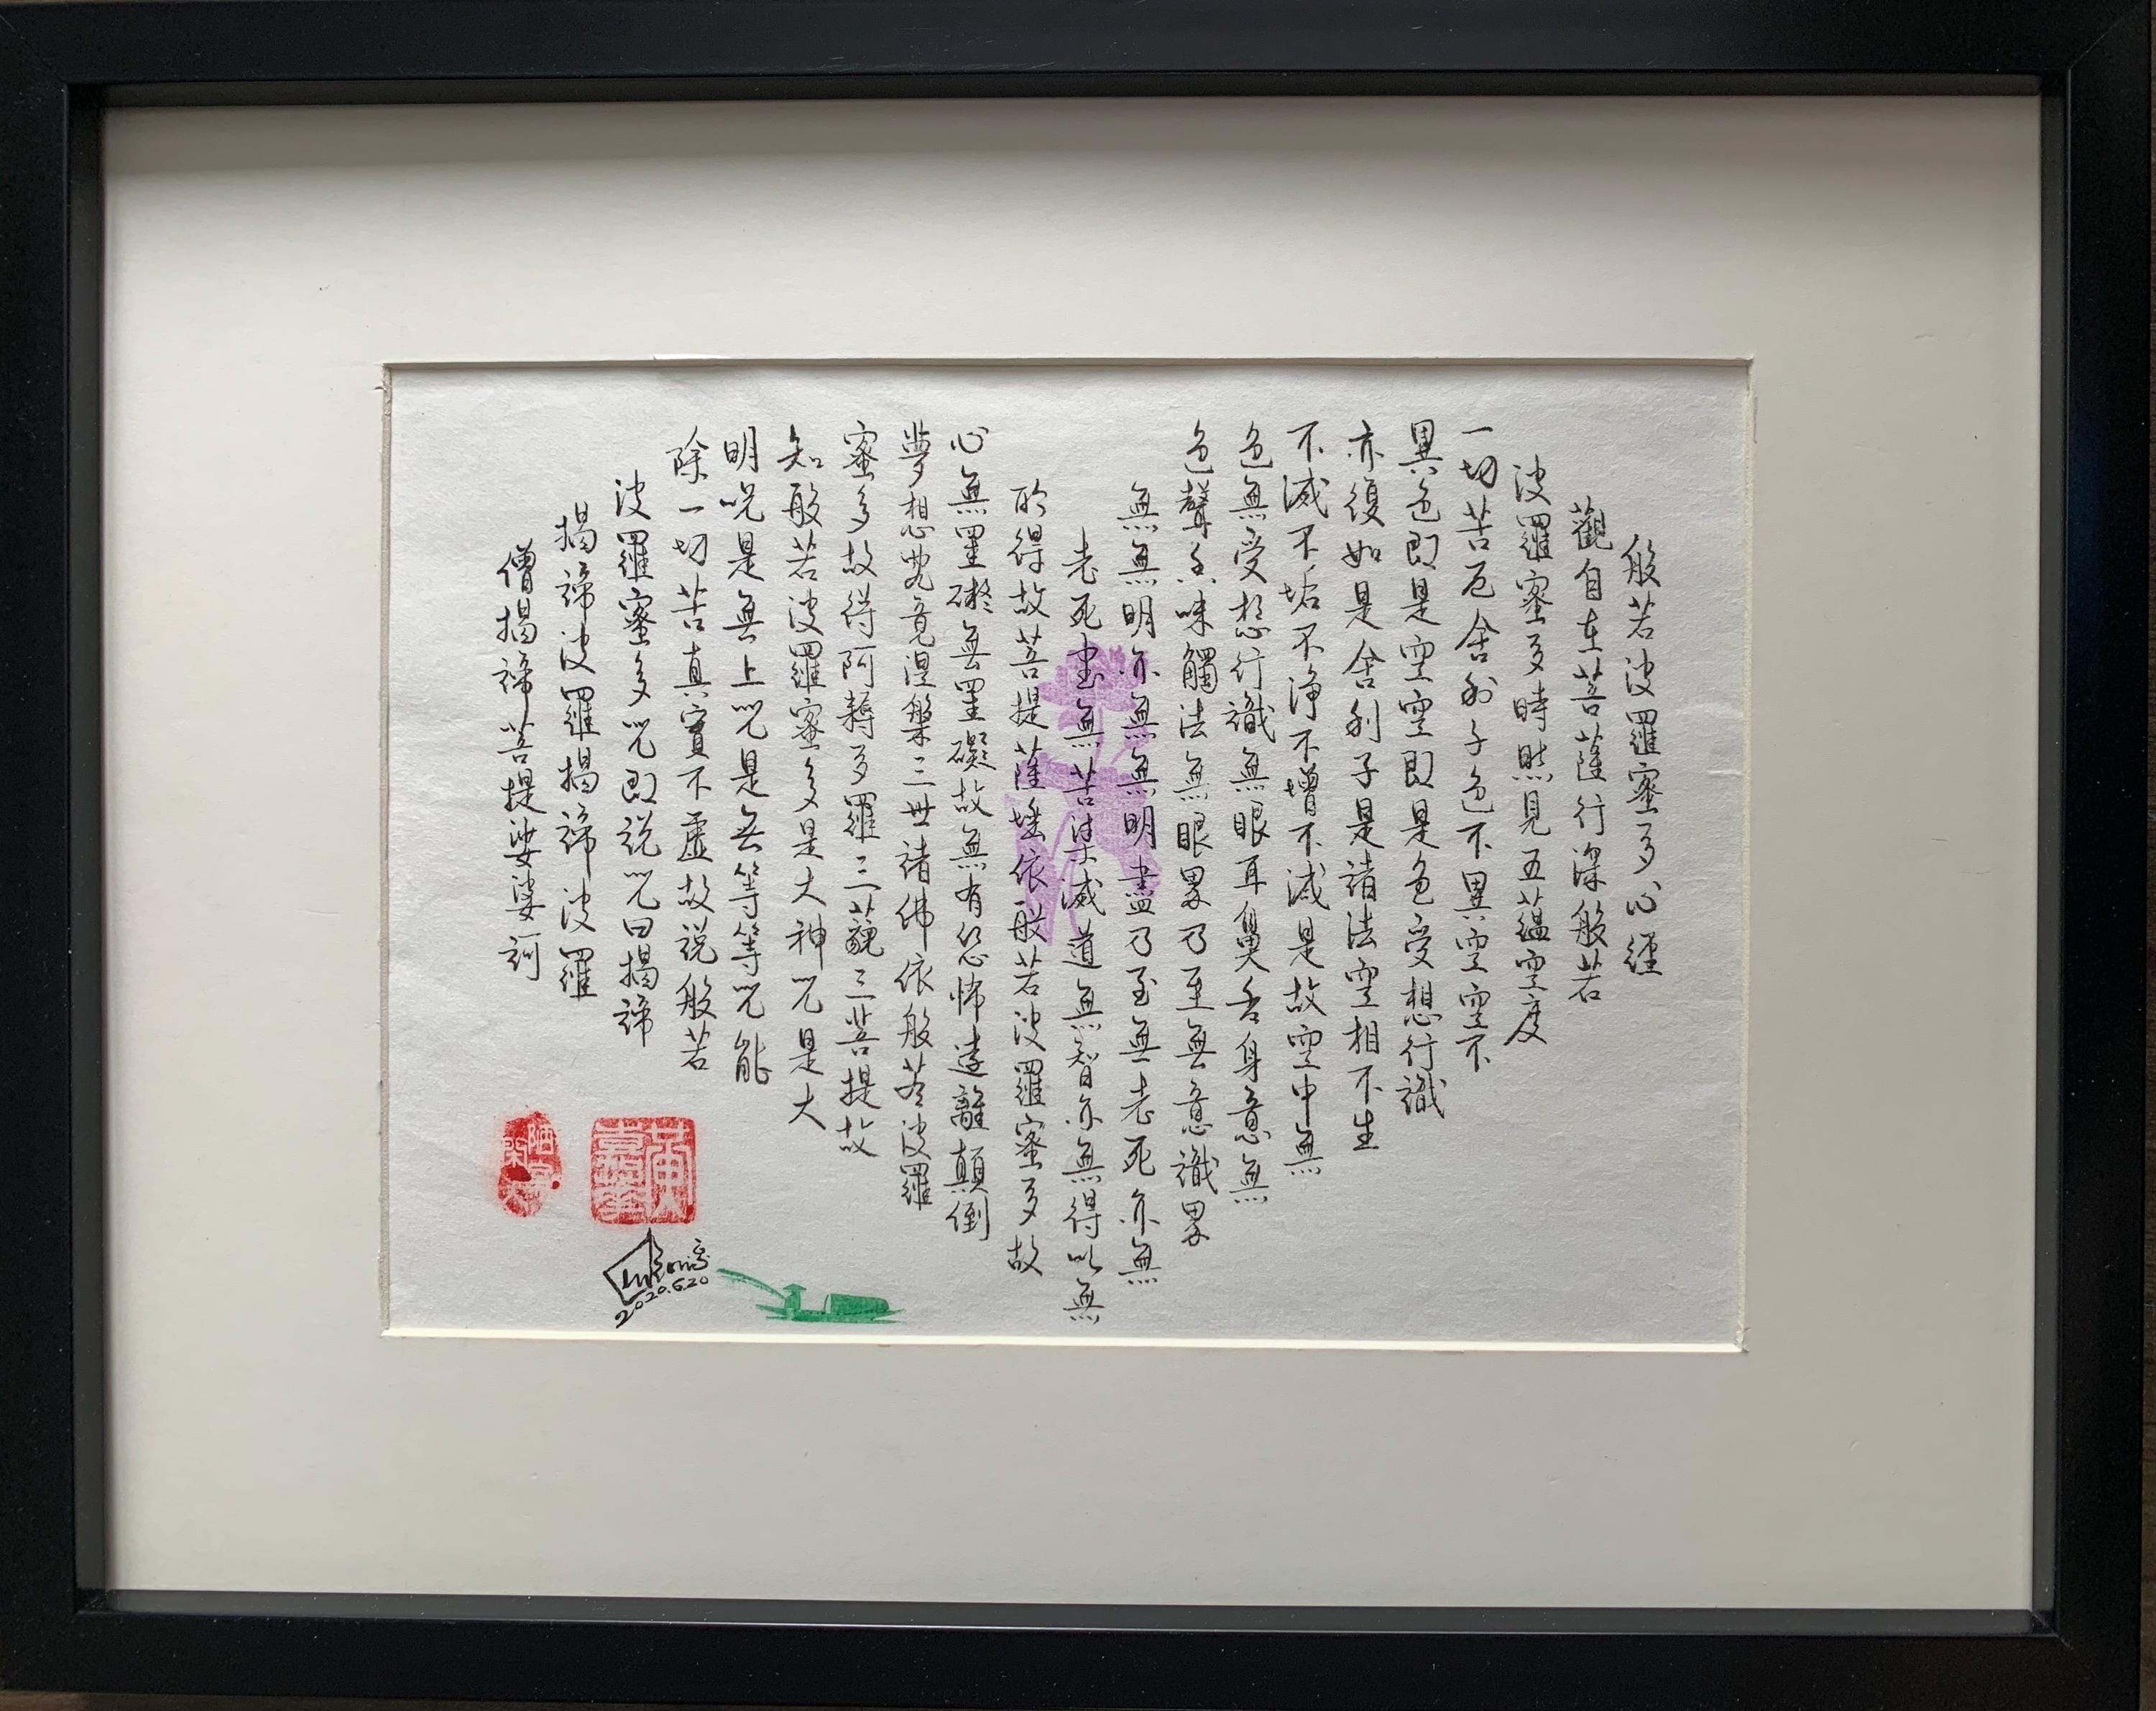 般若波羅蜜多心經
觀自在菩薩行深般若
波羅蜜多時照見五蘊空度
一切苦厄舍利子色不異空空不
異色即是空空即是色受想行識
亦復如是舍利子是諸法空相不生
不滅不垢不淨不增不減是故空中無
色無受想行識無眼耳鼻舌身意無
色聲香味觸法無眼界乃至無意識界
無無明亦無無明盡乃至無老死亦無
老死盡無苦集滅道無智亦無得以無
所得故菩提薩埵依般若波羅蜜多故
心無罣礙無罣礙故無有恐怖遠離顛倒
夢想究竟涅槃三世諸佛依般若波羅
蜜多故得阿耨多羅三藐三菩提故
知般若波羅蜜多是大神咒是大
明咒是無上咒是無等等咒能
除一切苦真實不虛故說般若
波羅蜜多咒即說咒曰揭諦
揭諦波羅揭諦波羅
僧揭諦菩提娑婆訶
2020.6.20